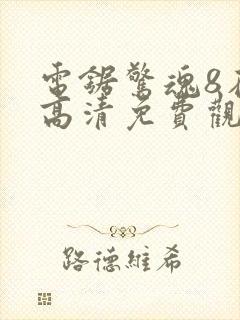 電鋸驚魂8
高清免費觀
路德維希